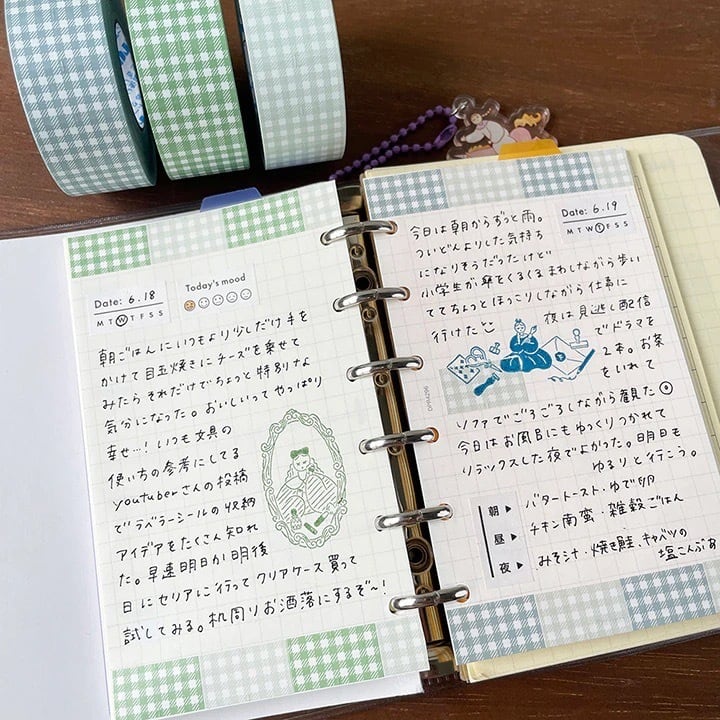 Date: 6.18
M T W T F S S
Today's mood
朝ごはんにいつもより少しだけ手を
かけて目玉焼きにチーズを乗せて
みたらそれだけでちょっと特別な
気分になった。おいしいってやっぱり
幸せ…! いつも文具の
使い方の参考にしてる
youtuberさんの投稿
でラベラーシールの収納
アイデアをたくさん知れ
た。早速明日か明後
日にセリアに行ってクリアケース買って
試してみる。机周りお洒落にするぞ〜!
Date: 6.19
M T W T F S S
今日は朝からずっと雨。
ついどんよりした気持ち
になりそうだったけど
小学生が傘をくるくるまわしながら歩い
ててちょっとほっこりしながら仕事に
行けたよ
夜は見逃し配信
でドラマを
2本。お茶
をいれて
ソファでごろごろしながら観た
今日はお風呂にもゆっくりつかれて
リラックスした夜でよかった。明日も
ゆるりと行こう。
朝▶ バタートースト・ゆで卵
昼▶ チキン南蛮・雑穀ごはん
夜▶ みそ汁・焼き鮭、キャベツの
塩こんぶあ